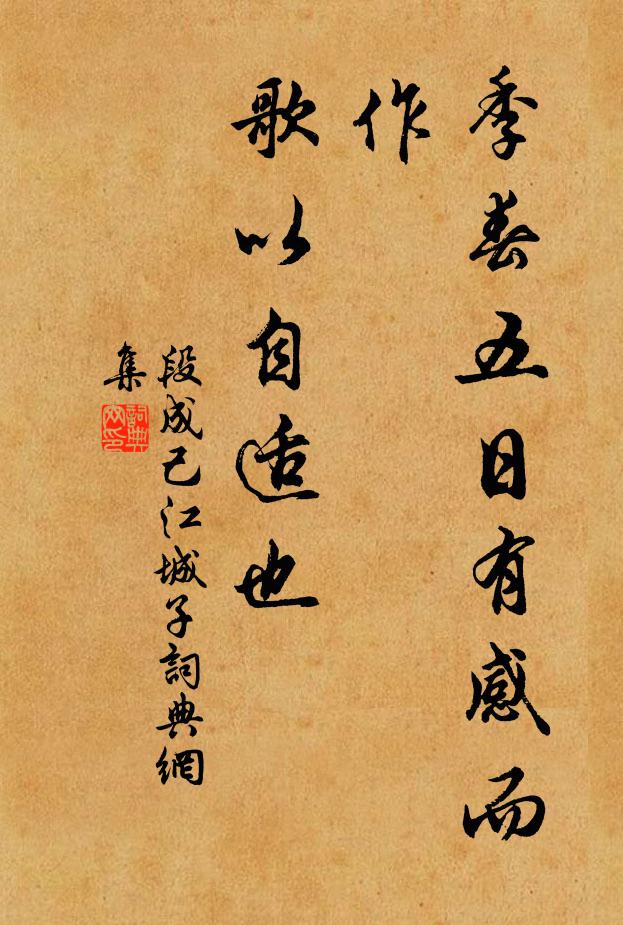 季春五日有感而
作
歌以自适也
段成己江城子詞典網
集
詞典
网印